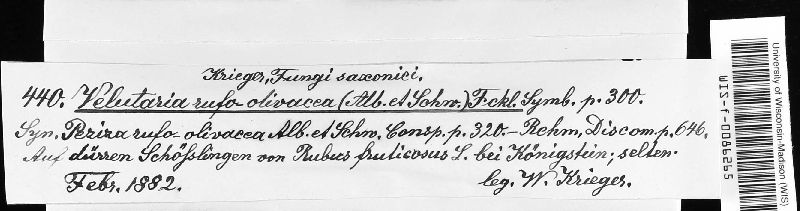 Krieger, Fungi saxonici.
440. Velutaria rufo-olivacea (Alb. et Schw.) Fckl. Symb. p. 300.
Syn. Peziza rufo-olivacea Alb. et Schw. Consp. p. 320.- Rehm, Discom. p. 646.
Auf dürren Schösslingen von Rubus fruticosus L. bei Königstein; selten.
Febr. 1882. leg. W. Krieger.
University of Wisconsin-Madison (WIS)
WIS-f-0086265